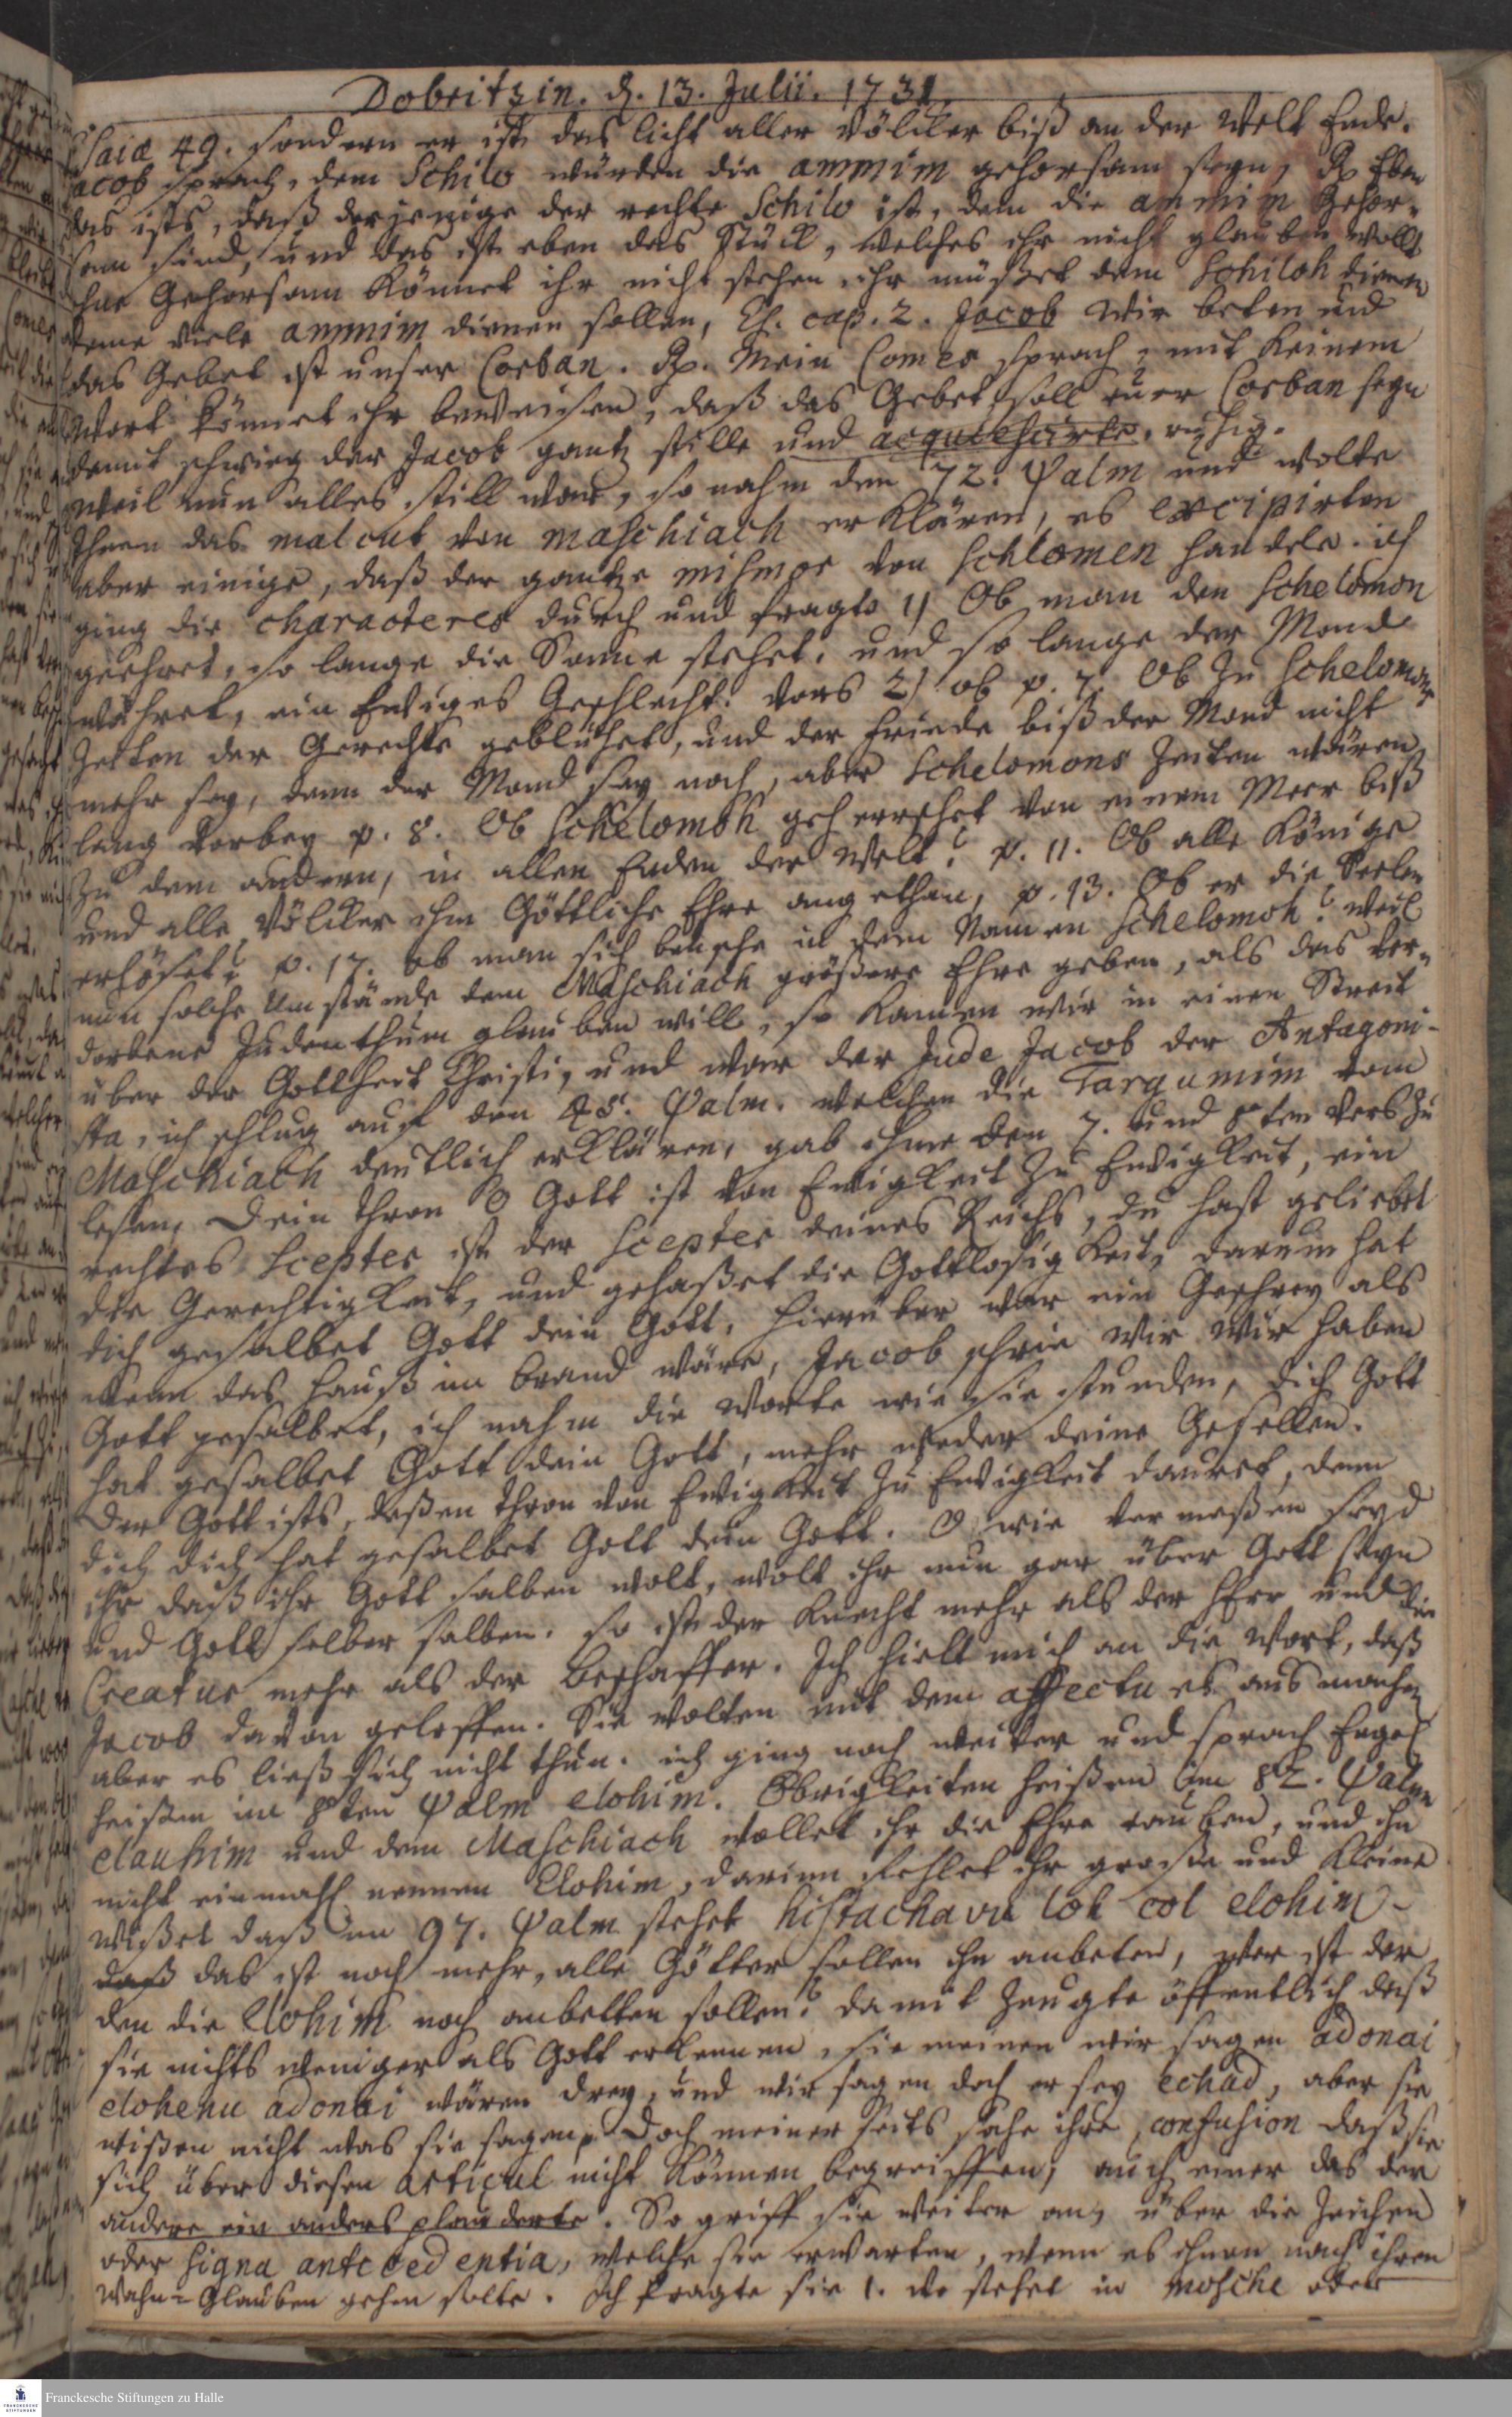 Dobritzin. d. 13. Julii. 1731
Esaiae 49. sondern er ist das licht aller Völcker biß an der Welt Ende.
Jacob sprach, dem Schilo würden die ammim gehorsam seyn, Rx Eben
das ists, daß derjenige der rechte Schilo ist, dem die ammim gehor-
sam sind, und das ist eben das Stück, welches ihr nicht glauben wollt
ohne Gehorsam könnet ihr nicht stehen, ihr müßet dem Schiloh dienen
deme viele ammim dienen sollen, Es. cap. 2. Jacob Wir beten und
das Gebet ist unser Corban. Rx. Mein Comes sprach, mit keinem
Wort könnet ihr beweisen, daß das Gebet soll euer Corban seyn
damit schwieg der Jacob gantz stille und acquiescirte, ruhig.
Weil nun alles still war, so nahm den 72. Psalm und wolte
Ihnen das malcut von maschiach erklären, es excipirten
aber einige, daß der gantze mismor von Schlomen handele. ich
ging die characteres durch und fragte 1) Ob man den Schelomon
geehret, so lange die Sonne stehet, und so lange der Mond
währet, ein Ewiges Geschlecht. vers 2) ob p. 7. Ob zu Schelomons
Zeiten der Gerechte geblühet, und der Friede biß der Mond nicht
mehr sey, denn der Mond sey noch, aber Schelomons Zeiten wären
lang vorbey p. 8. Ob Schelomoh geherrschet von einem Meer biß
zu dem andern, in allen Enden der Welt? p. 11. Ob alle Könige
und alle Völcker ihm Göttliche Ehre angethan, p. 13. Ob er die Seelen
erlöset? p. 17. ob man sich bensche in dem Namen Schelomoh? Weil
nun solche Umstände dem Maschiach größere Ehre geben, als das ver-
dorbene Judenthum glauben will, so kamen wir in einen Streit
über der Gottheit Christi, und war der Jude Jacob der Antagoni-
sta, ich schlug auf den 45. Psalm. welchen die Targumim vom
Maschiach deutlich erklären, gab ihme den 7. und 8ten Vers zu
lesen, Dein Thron O Gott ist von Ewigkeit zu Ewigkeit, ein
rechtes Scepter ist der Scepter deines Reichs, du hast geliebet
die Gerechtigkeit, und gehaßet die Gottlosigkeit, darum hat
dich gesalbet Gott dein Gott, hierüber war ein Geschrey als
wenn das Hauß im brand wäre, Jacob schrie Wir Wir haben
Gott gesalbet, ich nahm die Worte wie sie stunden, dich Gott
hat gesalbet Gott dein Gott, mehr weder deine Gesellen.
Der Gott ists, deßen Thron von Ewigkeit zu Ewigkeit dauret, denn
dich dich hat gesalbet Gott dein Gott. O wie vermeßen seyd
ihr daß ihr Gott salben wolt, wolt ihr nun gar über Gott seyn
und Gott selber salben. so ist der Knecht mehr als der Herr und die
Creatur mehr als der Beschaffer. Ich hielt mich an die Wort, daß
Jacob davon geloffen. Sie wolten mit dem affectu es ausmachen
aber es ließ sich nicht thun. ich ging noch weiter und sprach Engel
heißen im 8ten Psalm elohim. Obrigkeiten heißen im 82. Psalm
elauhim und dem Maschiach wollet ihr die Ehre rauben, und ihn
nicht einmahl nennen Elohim, darinn fehlet ihr große und kleine
wißet daß im 97. Psalm stehet histachavu loh col elohim
daß das ist noch mehr, alle Götter sollen ihn anbeten, wer ist der
den die Elohim noch anbetten sollen? damit zeugte öffentlich daß
sie nichts weniger als Gott erkennen, sie meinen wir sagen adonai
elohenu adonai wären drey, und wir sagen doch er sey echad, aber sie
wißen nicht was sie sagen. Doch meiner seits sahe ihre confusion daß sie
sich über diesen articul nicht können begreiffen, auch einer das der
andere ein anders plauderte. So griff sie weiter an, über die Zeichen
oder signa antecedentia, welche sie erwarten, wenn es ihnen nach ihren
Wahn-Glauben gehen solte. Ich fragte sie 1. wo stehet in mosche oder
Franckesche Stiftungen zu Halle